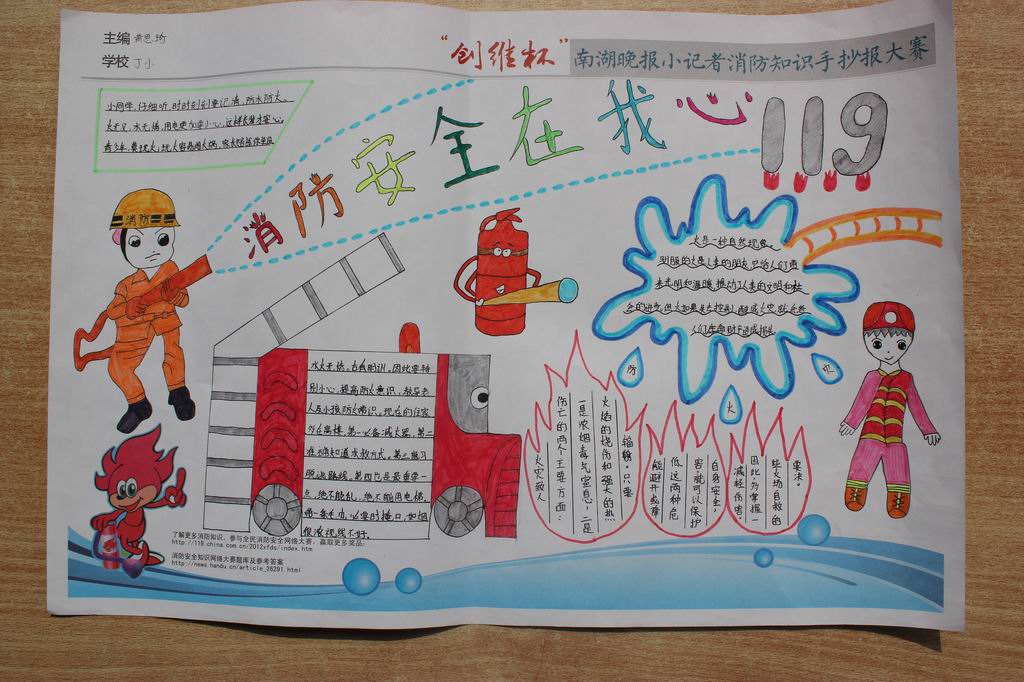 主编 黄思琦
学校 丁小
“创维杯”南湖晚报小记者消防知识手抄报大赛
消防安全在我心 119
小同学，仔细听，时时刻刻要记清，防水防火。
火无义，水无情，用电更加要小心，这样长健才安心。
消防
火是一种自然现象。
驯服的火是人类的朋友，它给人们带
来光明和温暖，推动了人类的文明和社
会的进步。但火如果是失控制，酿成火灾，就会给
人们生命财产造成损失
防
火
灾
水火无情。古为明训。因此要特
别小心，提高防火意识，教导老
人及小孩防火常识。现在的住家
外在高楼，第一必备灭火器，第二
准确知道求救方式，第三熟习
脱逃路线，第四也是最重要一
点，绝不能乱，绝不能用电梯。
带一条毛巾，必要时掩口，如烟
很浓视线不好。
火灾致人
伤亡的两个主要方面：
一是浓烟毒气窒息，二是
火焰的烧伤和强大的热
辐射。只要
能避开或降
低这两种危
害，就可以保护
自身安全，
减轻伤害。
因此，多掌握一
些火场自救的
要决，
了解更多消防知识，参与全民消防安全网络大赛，赢取更多奖品：
http://119.china.com.cn/2012xfds/index.htm
消防安全知识网络大赛题库及参考答案
http://news.handu.cn/article_26291.html